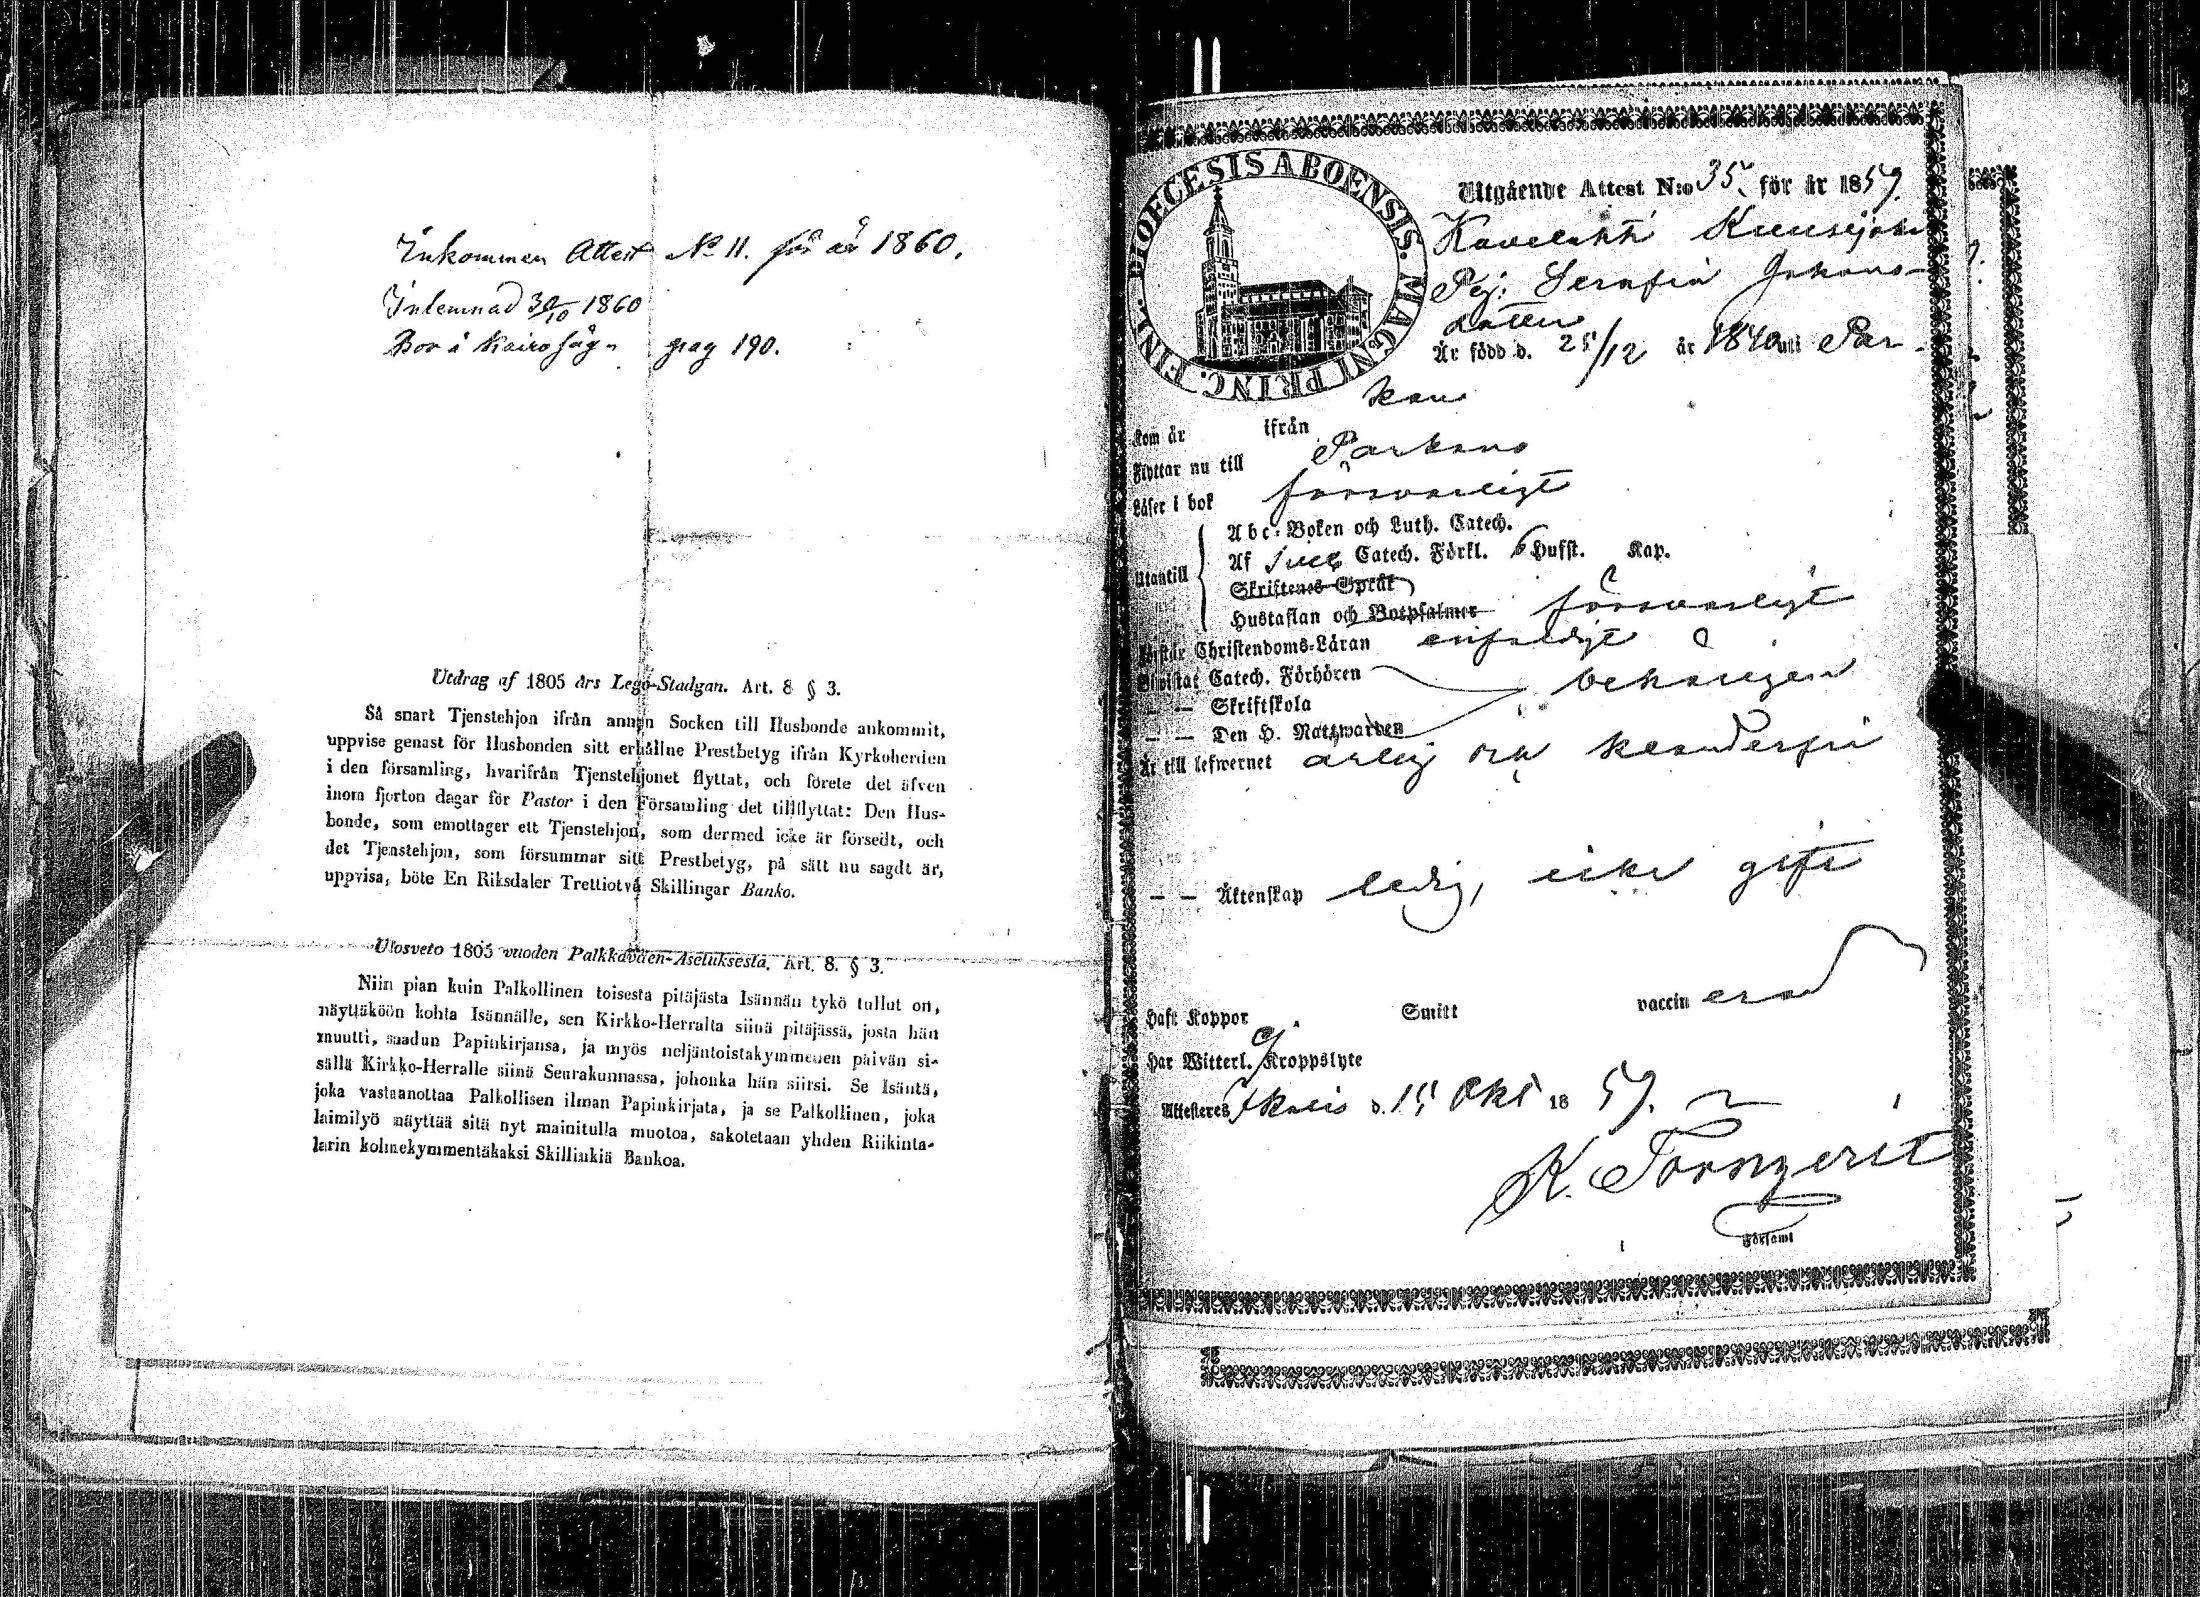 Inkommen Attest No 11. för år 1860.
Inlemnad 30/10 1860
Bor å pag 190.
Utdrag af 1805 års Lego-Stadgan. Art. 8 § 3.
Så snart Tjenstehjon ifrån annan Socken till Husbonde ankommit,
uppvise genast för Husbonden sitt erhållne Prestbetyg ifrån Kyrkoherden
i den församling, hvarifrån Tjenstehjonet flyttat, och förete det äfven
inom fjorton dagar för Pastor i den Församling det tillflyttat: Den Hus-
bonde, som emottager ett Tjenstehjon, som dermed icke är försedt, och
det Tjenstehjon, som försummar sitt Prestbetyg, på sätt nu sagdt är,
uppvisa, böte En Riksdaler Trettiotvå Skillingar Banko.
Ulosveto 1805 vuoden Palkkaväen-Asetuksesta. Art. 8. § 3.
Niin pian kuin Palkollinen toisesta pitäjästa Isännän tykö tullut on,
näyttäköön kohta Isännälle, sen Kirkko-Herralta siinä pitäjässä, josta hän
muutti, saadun Papinkirjansa, ja myös neljäntoistakymmenen päivän si-
sällä Kirkko-Herralle siinä Seurakunnassa, johonka hän siirsi. Se Isäntä,
joka vastaanottaa Palkollisen ilman Papinkirjata, ja se Palkollinen, joka
laimilyö näyttää sitä nyt mainitulla muotoa, sakotetaan yhden Riikinta-
larin kolmekymmentäkaksi Skillinkiä Bankoa.
DIOECESIS ABOENSIS. MAGNI PRINC. FINL.
Utgående Attest N:o 35. för år 1859.
Pig. Serafia Johans-
dotter
Är född d. 25/12 år 1840 uti Par-
kano
Kom år ifrån
Flyttar nu till Parkano
Läser i bok försvarligt
Utantill
Abc-Boken och Luth. Catech.
Af Sveb Catech. Förkl. 6 Hufst. Kap.
Skriftenes Språk
Hustaflan och Botpsalmer försvarligt
Förstår Christendoms-Läran enfaldigt
Bivistat Catech. Förhören behörigen
— — Skriftskola
— — Den H. Nattwarden
Är till lefwernet ärlig och klanderfri
— — Äktenskap ledig, icke gift
Haft Koppor Smitt vaccinerad
Har Witterl. ej Kroppslyte
Attesteres d. 15 Okt 1859.
K. Törnqvist
Församl